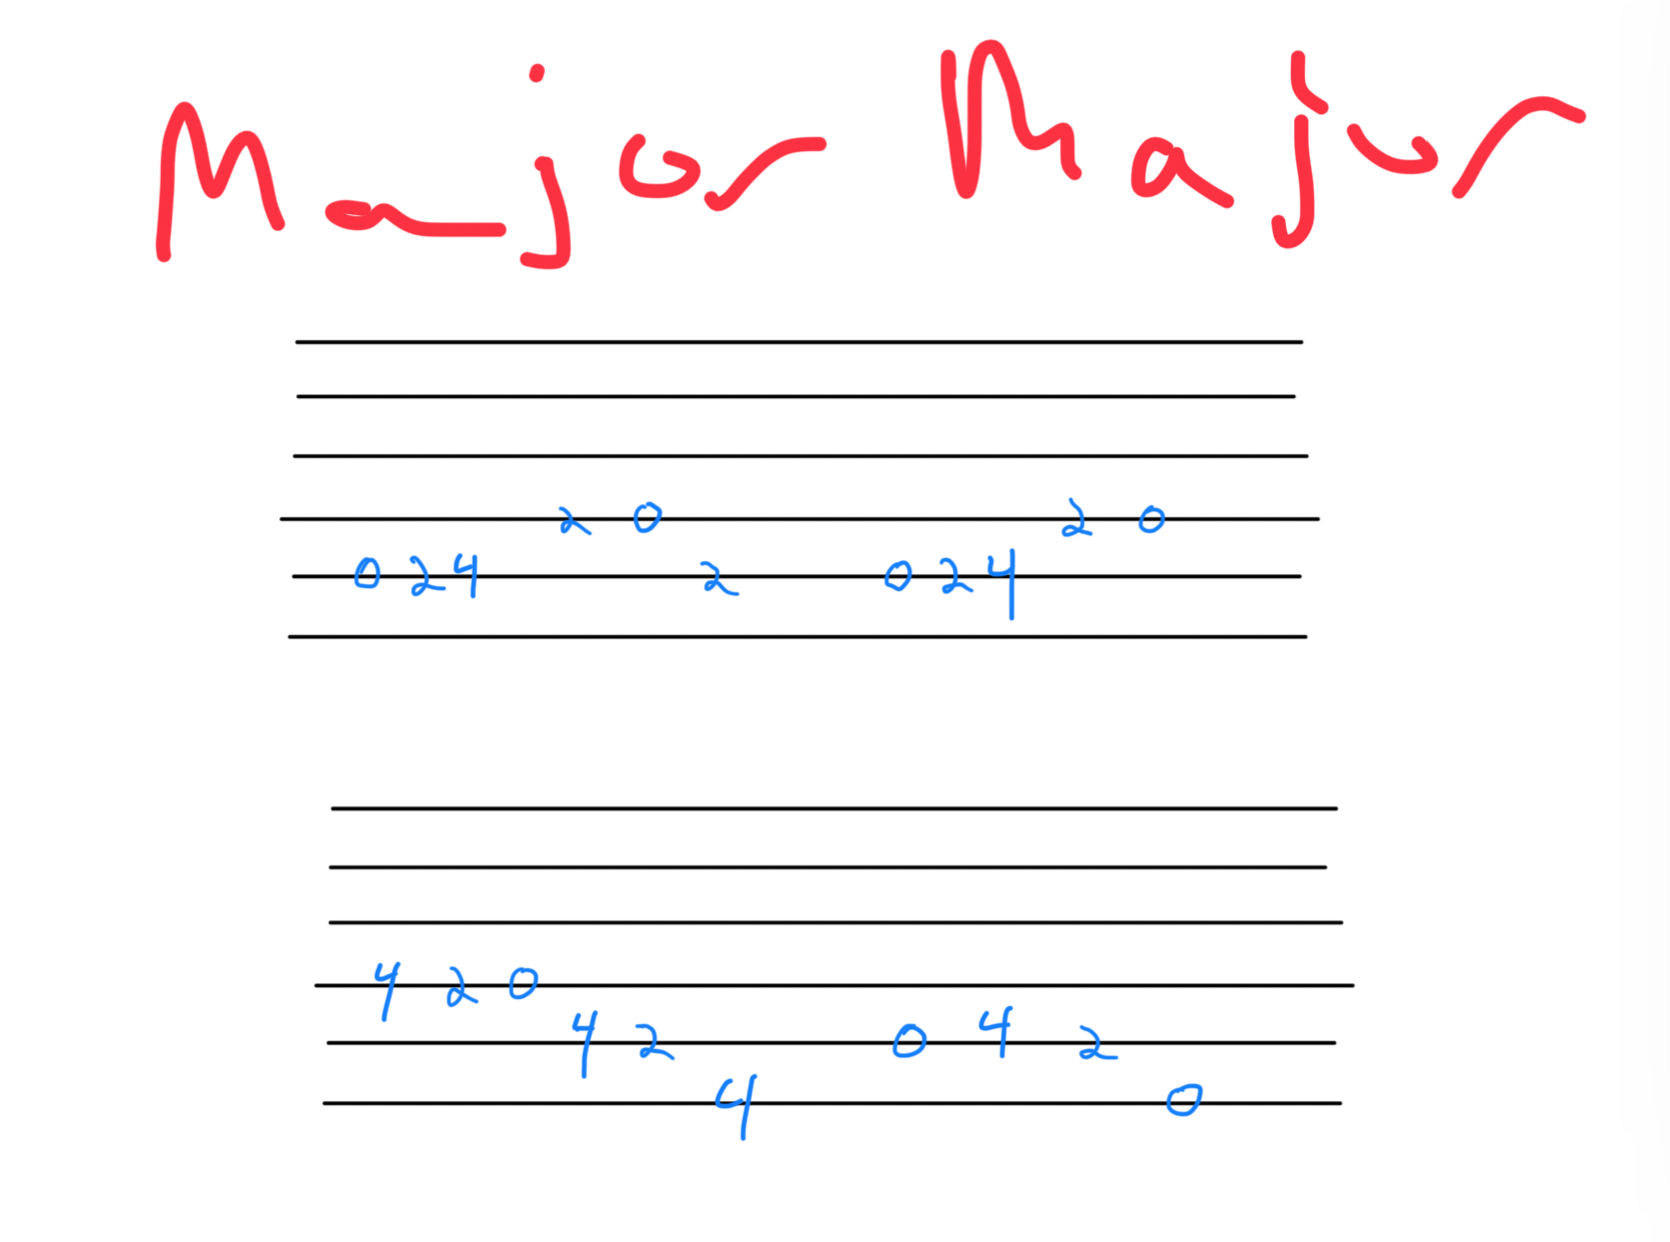 Major Major
2 0 2 0
0 2 4 2 0 2 4
4 2 0
4 2 0 4 2
4 0